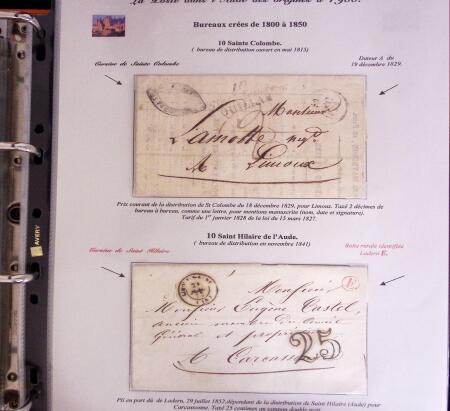 La Poste dans l'Aude des origines à 1900.
Bureaux crées de 1800 à 1850
10 Sainte Colombe.
( bureau de distribution ouvert en mai 1815)
Cursive de Sainte Colombe
Dateur A du
19 décembre 1829.
Monsieur
Lamothe
A Limoux
Prix courant de la distribution de St Colombe du 18 décembre 1829, pour Limoux. Taxé 2 décimes de
bureau à bureau, comme une lettre, pour mentions manuscrite (nom, date et signature).
Tarif du 1er janvier 1828 de la loi du 15 mars 1827.
10 Saint Hilaire de l'Aude.
( bureau de distribution en novembre 1841)
Cursive de Saint Hilaire
Boîte rurale identifiée
Ladern E.
E
Monsieur
Monsieur Eugène Castel,
ancien membre du Conseil
Général et propriétaire
A Carcass
25
Pli en port dû de Ladern, 29 juillet 1852, dépendant de la distribution de Saint Hilaire (Aude) pour
Carcassonne. Taxé 25 centimes au tampon double port.
AVERY